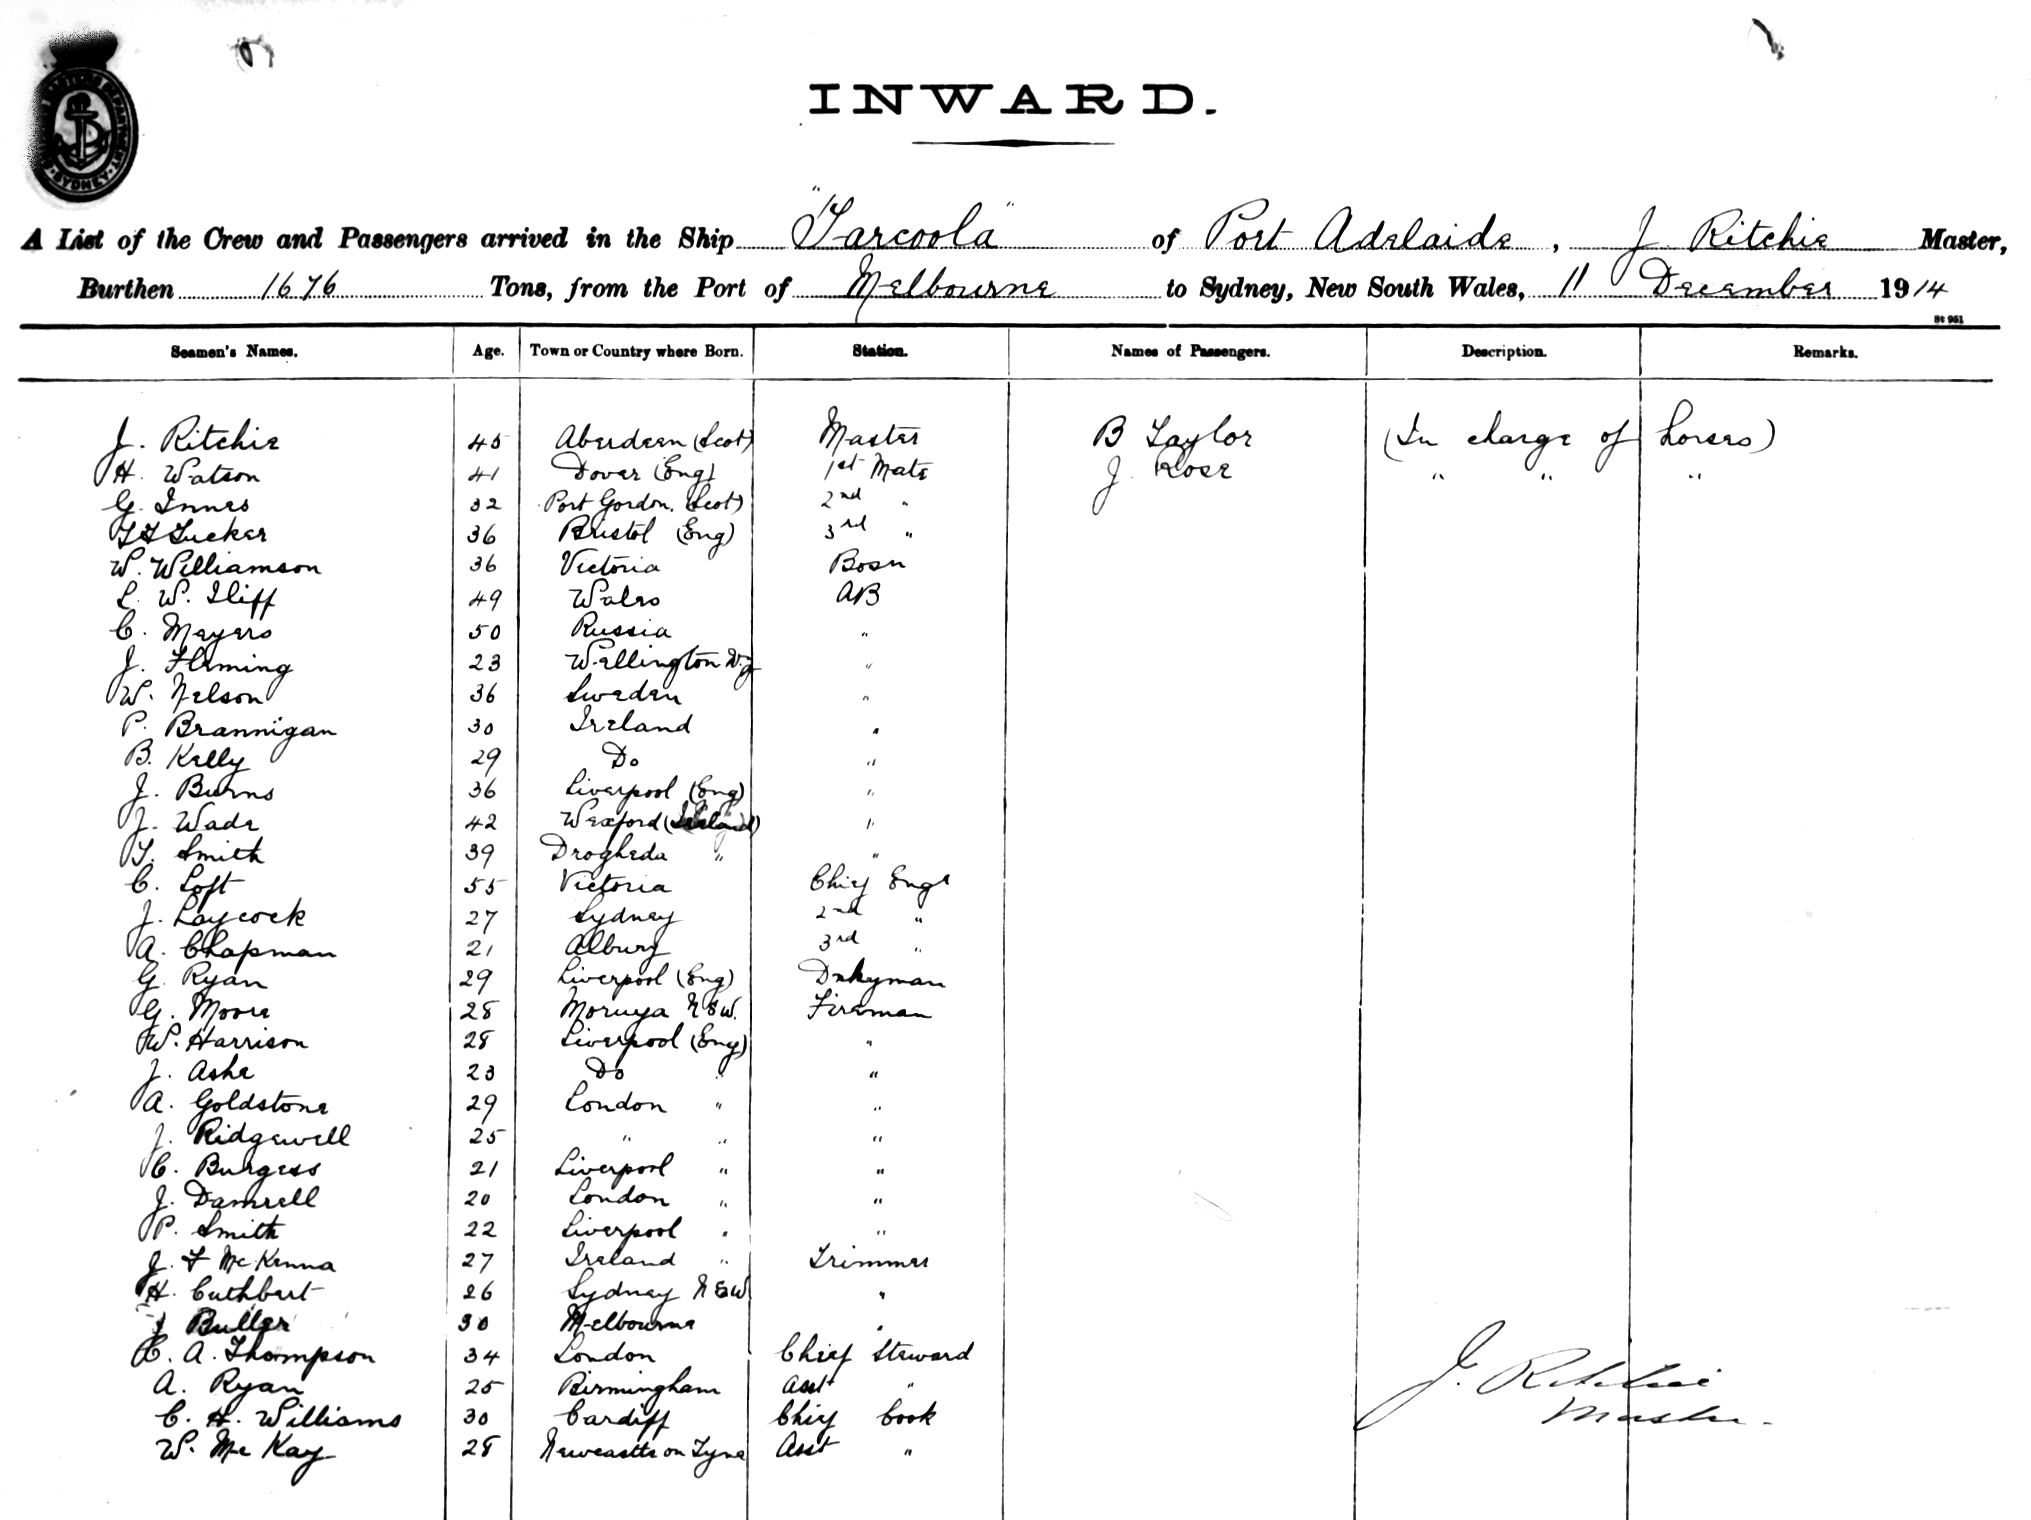 INWARD.
A List of the Crew and Passengers arrived in the Ship "Tarcoola" of Port Adelaide, J Ritchie Master,
Burthen 1676 Tons, from the Port of Melbourne to Sydney, New South Wales, 11 December 1914
St 951
Seamen's Names. Age. Town or Country where Born. Station. Names of Passengers. Description. Remarks.
J. Ritchie 45 Aberdeen (Scot) Master B Taylor (In charge of horses)
H. Watson 41 Dover (Eng) 1st Mate J. Rose " " "
G. Innes 32 Port Gordon. (Scot) 2nd "
T F Tucker 36 Bristol (Eng) 3rd "
W. Williamson 36 Victoria Bosn
L. W. Iliff 49 Wales AB
C. Meyers 50 Russia "
J. Fleming 23 Wellington N.Z "
W. Nelson 36 Sweden "
P. Brannigan 30 Ireland "
B. Kelly 29 Do "
J. Burns 36 Liverpool (Eng) "
J. Wade 42 Wexford (Ireland) "
T. Smith 39 Drogheda " "
C. Loft 55 Victoria Chief Engr
J. Laycock 27 Sydney 2nd "
A. Chapman 21 Albury 3rd "
G. Ryan 29 Liverpool (Eng) Dnkyman
G. Moore 28 Moruya NSW. Fireman
W. Harrison 28 Liverpool (Eng) "
J. Ashe 23 Do "
A. Goldstone 29 London " "
J. Ridgewell 25 " " "
C. Burgess 21 Liverpool " "
J. Damrell 20 London " "
P. Smith 22 Liverpool " "
J. F McKenna 27 Ireland " Trimmer
H. Cuthbert 26 Sydney NSW "
J Butler 30 Melbourne "
C. A. Thompson 34 London Chief Steward
A. Ryan 25 Birmingham Asst "
C. H. Williams 30 Cardiff Chief Cook
W. McKay 28 Newcastle on Tyne Asst "
J. Ritchie
Master.